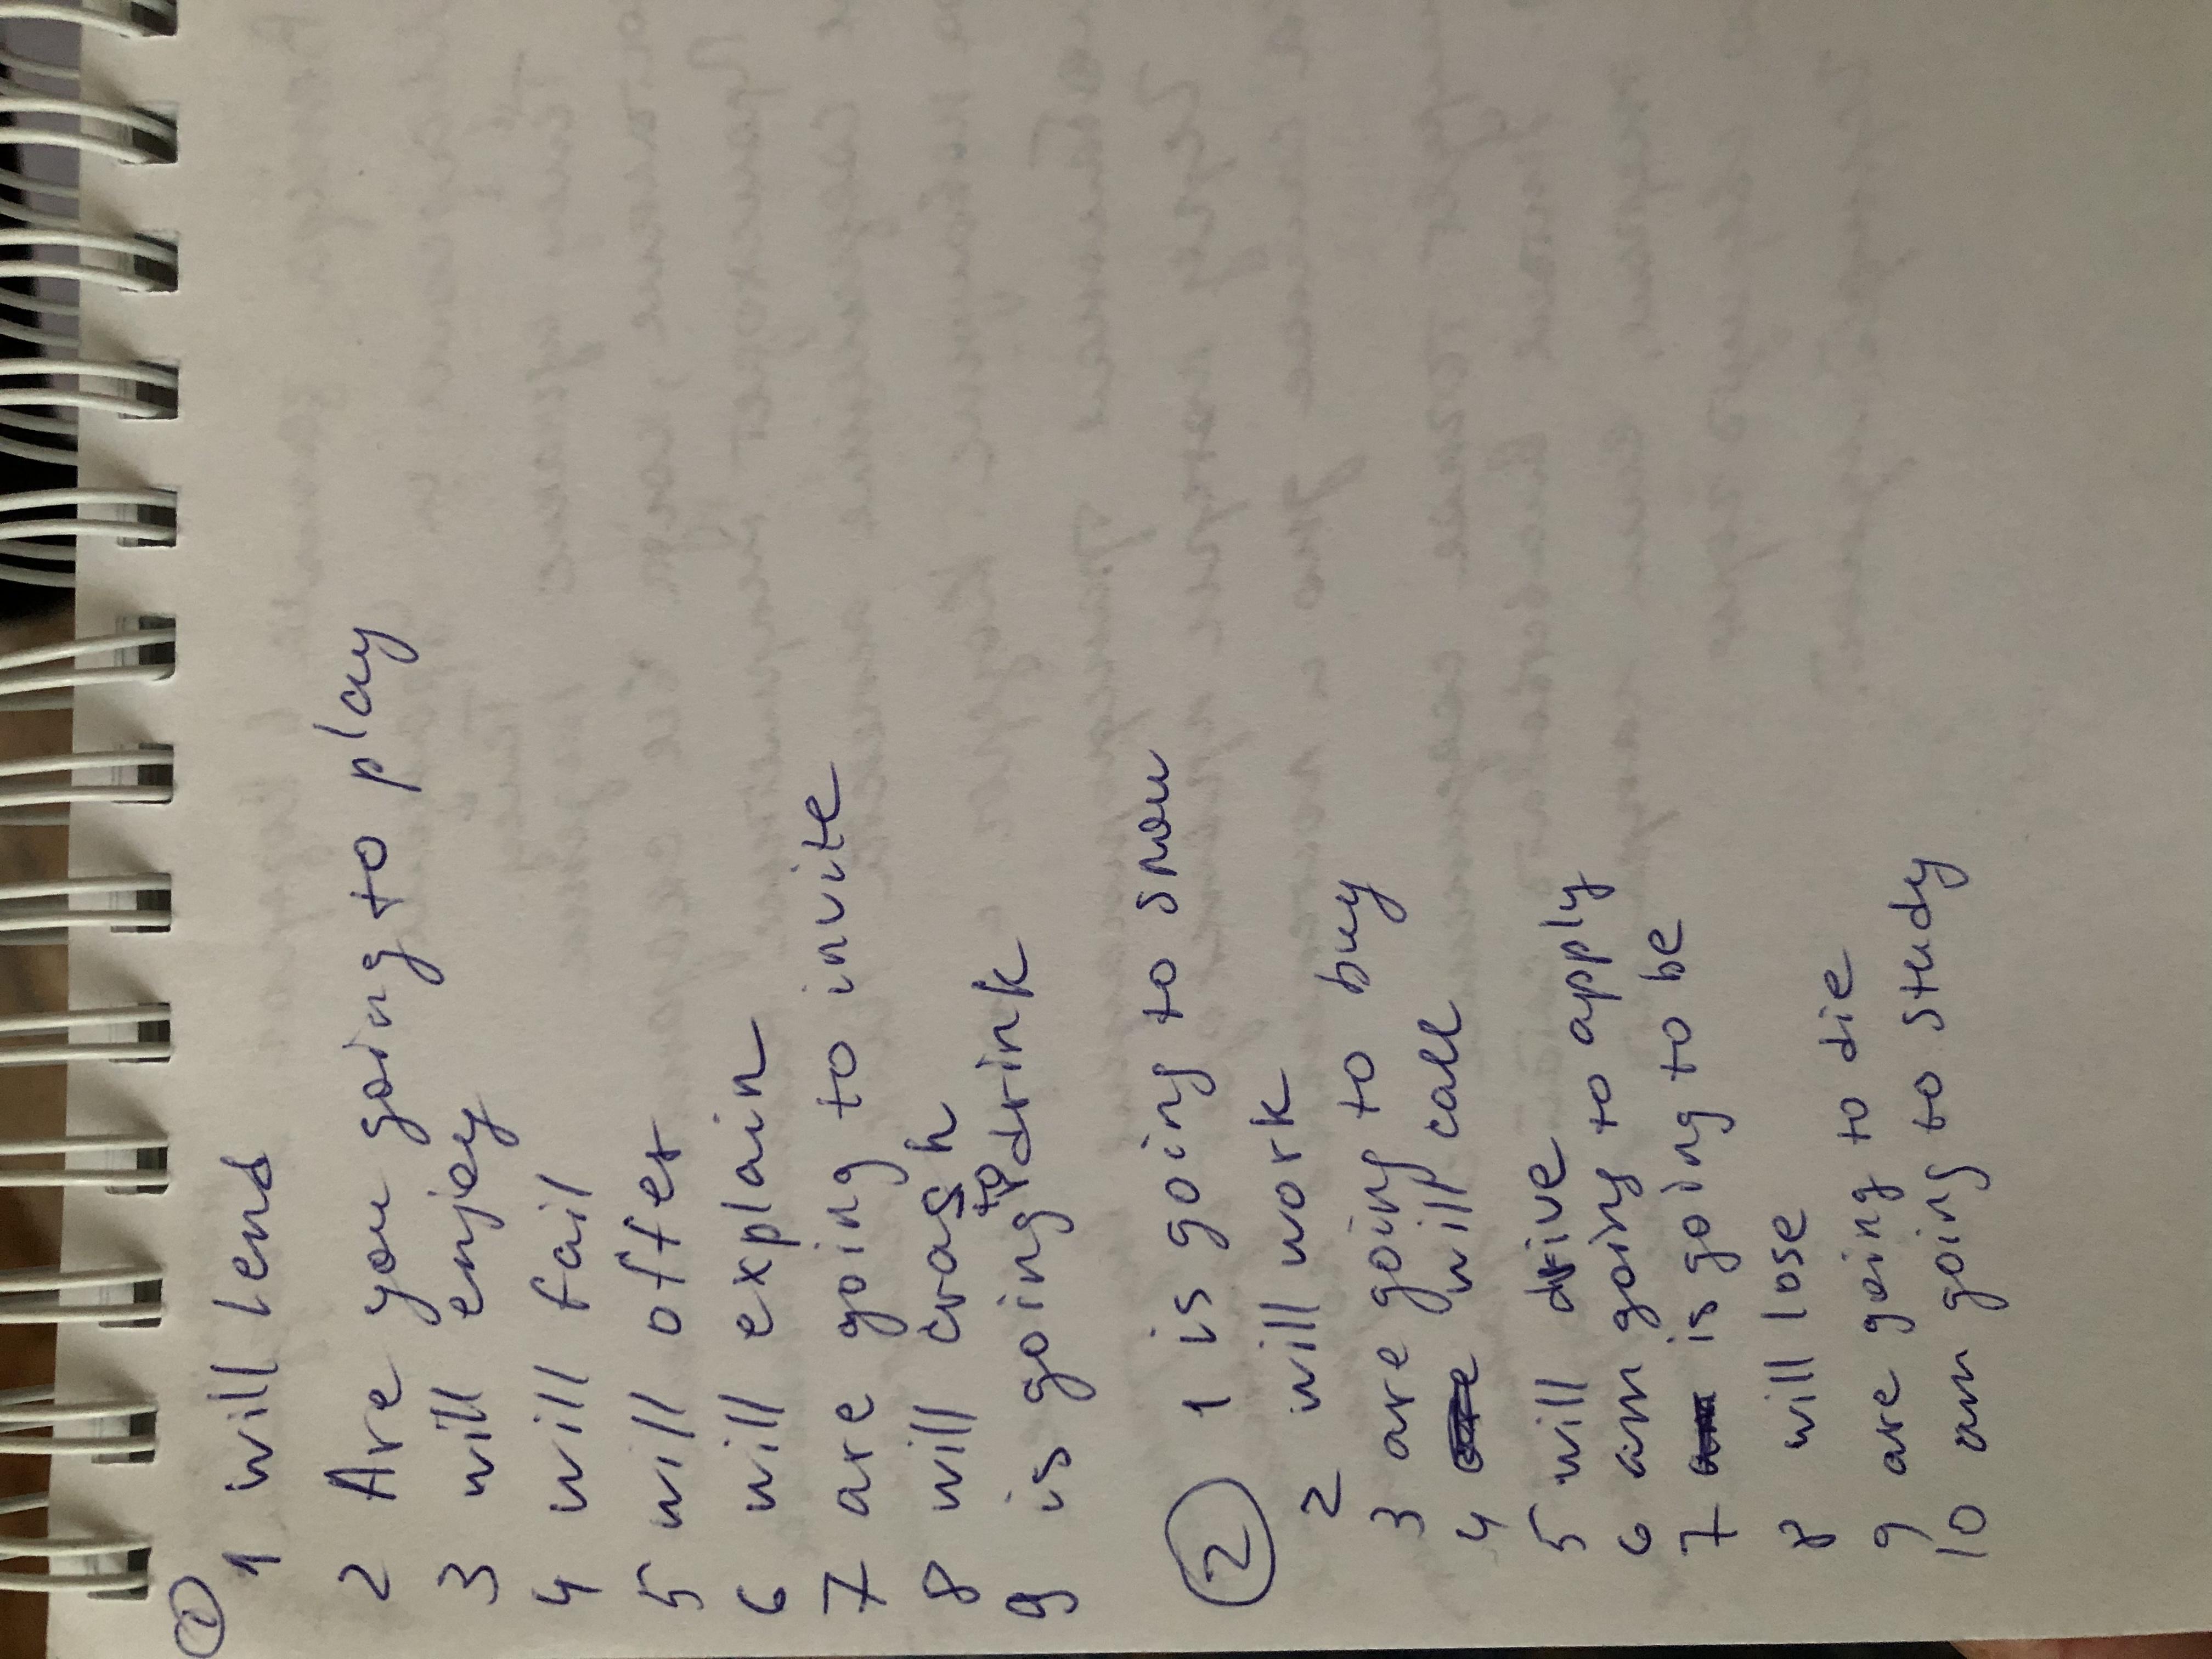 1
1 will lend
2 Are you going to play
3 will enjoy
4 will fail
5 will offer
6 will explain
7 are going to invite
8 will crash
9 is going to drink
2 1 is going to snow
2 will work
3 are going to buy
4 will call
5 will drive
6 am going to apply
7 is going to be
8 will lose
9 are going to die
10 am going to study